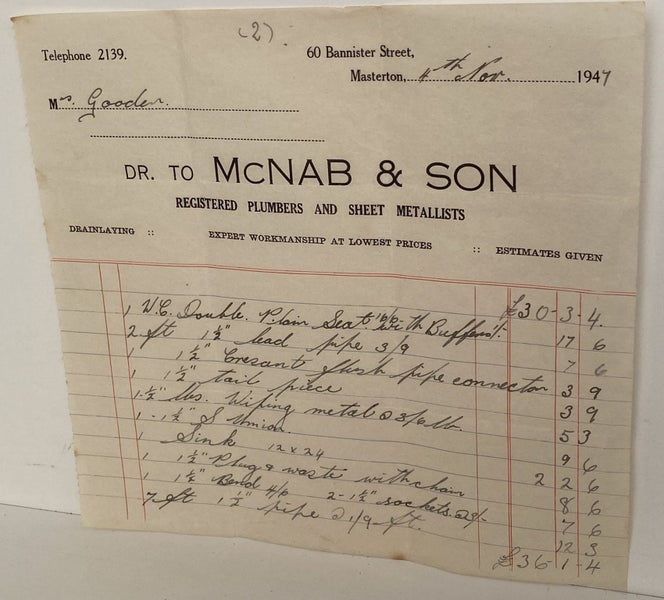 (2).
Telephone 2139.
60 Bannister Street,
Masterton, 4th Nov. 1947
Mrs. Gooden.
DR. TO McNAB & SON
REGISTERED PLUMBERS AND SHEET METALLISTS
DRAINLAYING :: EXPERT WORKMANSHIP AT LOWEST PRICES :: ESTIMATES GIVEN
£30-3-4.
1 W.C. Double. Plain Seat with Buffers 17 6
2 ft 1½" lead pipe 3/9 7 6
1 1½" Cresant flush pipe connector 3 9
1 1½" tail piece 3 9
1½ lbs. Wiping metal @ 3/6 lb. 5 3
1 - 1½" S Union. 9 6
1 Sink 12 x 24 2 2 6
1 1½" Plug & waste with chain 8 6
1 1½" Bend 4/6 2-1½" sockets. 7 6
7 ft 1½" pipe @ 1/9 ft. 12 3
£36 1-4